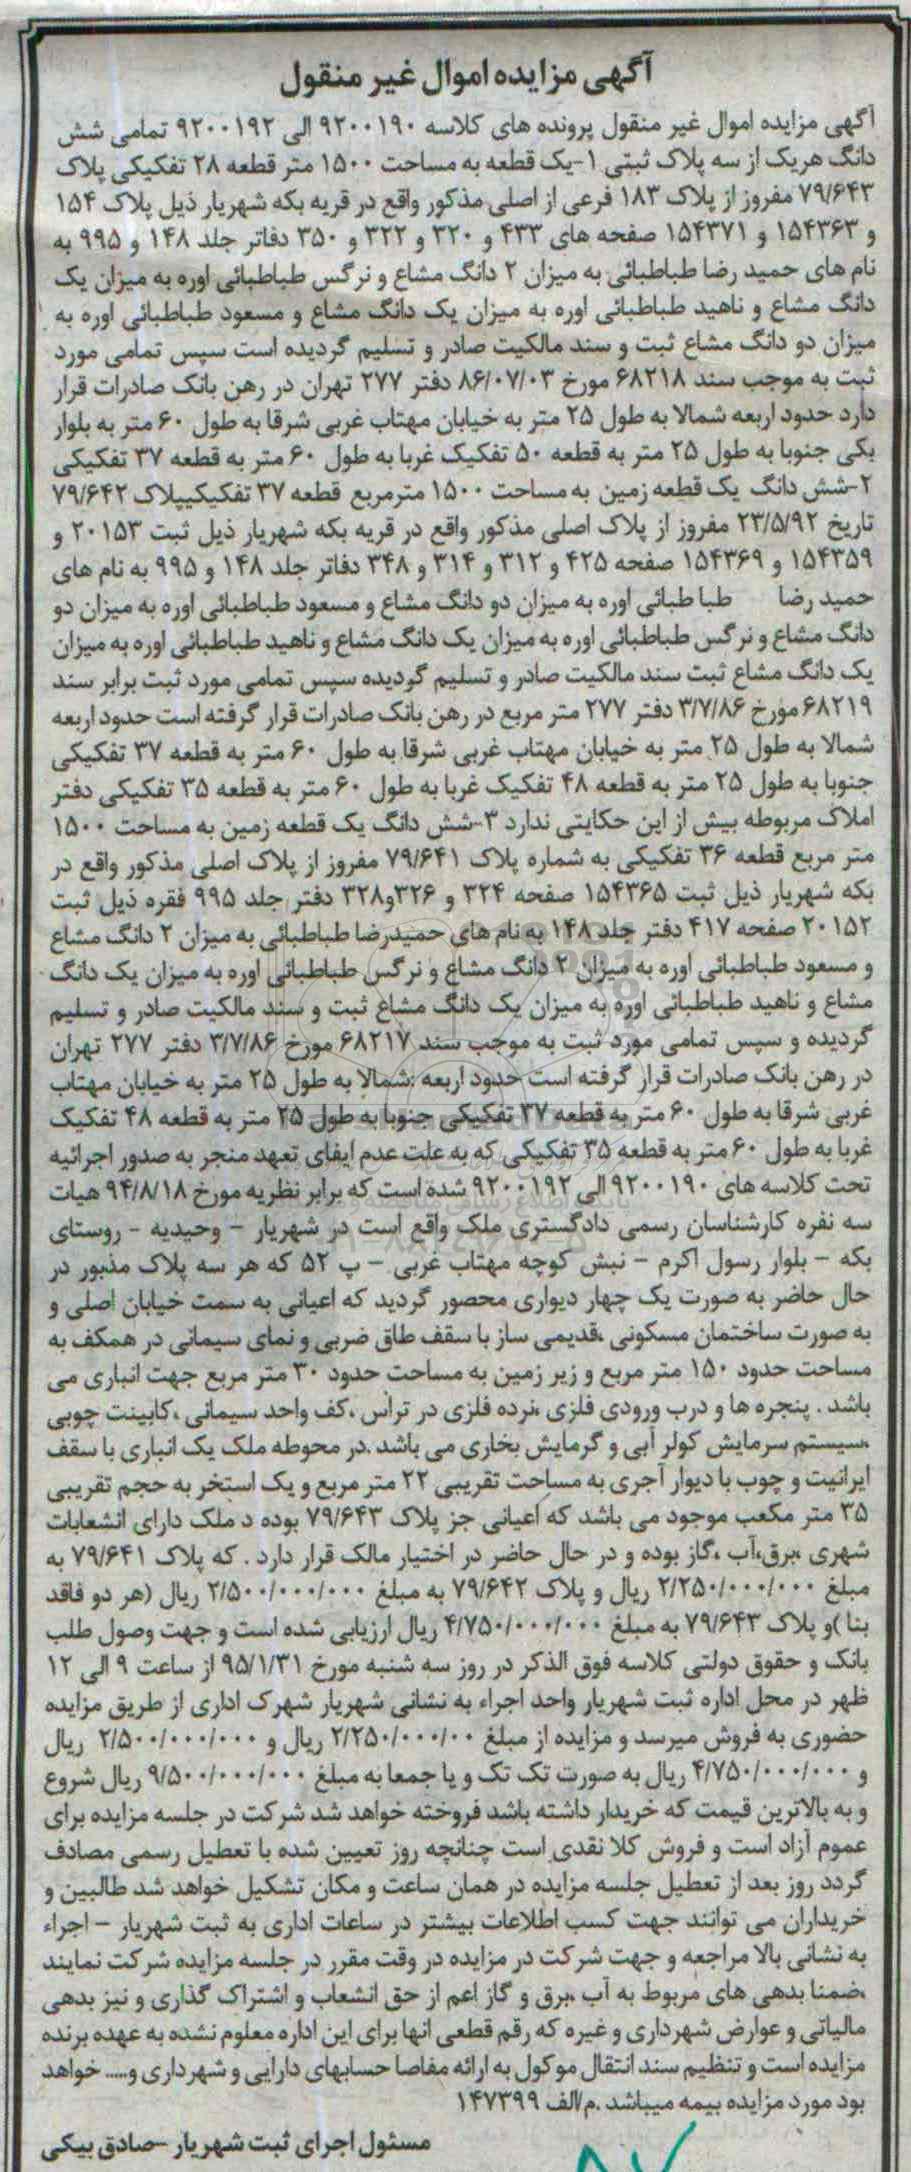 آگهی مزایده اموال غیر منقول
آگهی مزایده اموال غیر منقول پرونده های کلاسه ۹۲۰۰۱۹۰ الی ۹۲۰۰۱۹۲ تمامی شش
دانگ هریک از سه پلاک ثبتی ۱-یک قطعه به مساحت ۱۵۰۰ متر قطعه ۲۸ تفکیکی پلاک
۷۹/۶۴۳ مفروز از پلاک ۱۸۳ فرعی از اصلی مذکور واقع در قریه بکه شهریار ذیل پلاک ۱۵۴
و ۱۵۴۳۶۳ و ۱۵۴۳۷۱ صفحه های ۴۳۳ و ۳۲۰ و ۳۲۲ و ۳۵۰ دفاتر جلد ۱۴۸ و ۹۹۵ به
نام های حمید رضا طباطبائی به میزان ۲ دانگ مشاع و نرگس طباطبائی اوره به میزان یک
دانگ مشاع و ناهید طباطبائی اوره به میزان یک دانگ مشاع و مسعود طباطبائی اوره به
میزان دو دانگ مشاع ثبت و سند مالکیت صادر و تسلیم گردیده است سپس تمامی مورد
ثبت به موجب سند ۶۸۲۱۸ مورخ ۸۶/۰۷/۰۳ دفتر ۲۷۷ تهران در رهن بانک صادرات قرار
دارد حدود اربعه شمالا به طول ۲۵ متر به خیابان مهتاب غربی شرقا به طول ۶۰ متر به بلوار
یکی جنوبا به طول ۲۵ متر به قطعه ۵۰ تفکیک غربا به طول ۶۰ متر به قطعه ۳۷ تفکیکی
۲-شش دانگ یک قطعه زمین به مساحت ۱۵۰۰ مترمربع قطعه ۳۷ تفکیکیپلاک ۷۹/۶۴۲
تاریخ ۲۳/۵/۹۲ مفروز از پلاک اصلی مذکور واقع در قریه بکه شهریار ذیل ثبت ۲۰۱۵۳ و
۱۵۴۳۵۹ و ۱۵۴۳۶۹ صفحه ۴۲۵ و ۳۱۲ و ۳۱۴ و ۳۴۸ دفاتر جلد ۱۴۸ و ۹۹۵ به نام های
حمید رضا طبا طبائی اوره به میزان دو دانگ مشاع و مسعود طباطبائی اوره به میزان دو
دانگ مشاع و نرگس طباطبائی اوره به میزان یک دانگ مشاع و ناهید طباطبائی اوره به میزان
یک دانگ مشاع ثبت سند مالکیت صادر و تسلیم گردیده سپس تمامی مورد ثبت برابر سند
۶۸۲۱۹ مورخ ۳/۷/۸۶ دفتر ۲۷۷ متر مربع در رهن بانک صادرات قرار گرفته است حدود اربعه
شمالا به طول ۲۵ متر به خیابان مهتاب غربی شرقا به طول ۶۰ متر به قطعه ۳۷ تفکیکی
جنوبا به طول ۲۵ متر به قطعه ۴۸ تفکیک غربا به طول ۶۰ متر به قطعه ۳۵ تفکیکی دفتر
املاک مربوطه بیش از این حکایتی ندارد ۳-شش دانگ یک قطعه زمین به مساحت ۱۵۰۰
متر مربع قطعه ۳۶ تفکیکی به شماره پلاک ۷۹/۶۴۱ مفروز از پلاک اصلی مذکور واقع در
بکه شهریار ذیل ثبت ۱۵۴۳۶۵ صفحه ۳۲۴ و ۳۲۶و۳۲۸ دفتر جلد ۹۹۵ فقره ذیل ثبت
۲۰۱۵۲ صفحه ۴۱۷ دفتر جلد ۱۴۸ به نام های حمیدرضا طباطبائی به میزان ۲ دانگ مشاع
و مسعود طباطبائی اوره به میزان ۲ دانگ مشاع و نرگس طباطبائی اوره به میزان یک دانگ
مشاع و ناهید طباطبائی اوره به میزان یک دانگ مشاع ثبت و سند مالکیت صادر و تسلیم
گردیده و سپس تمامی مورد ثبت به موجب سند ۶۸۲۱۷ مورخ ۳/۷/۸۶ دفتر ۲۷۷ تهران
در رهن بانک صادرات قرار گرفته است حدود اربعه :شمالا به طول ۲۵ متر به خیابان مهتاب
غربی شرقا به طول ۶۰ متر به قطعه ۳۷ تفکیکی جنوبا به طول ۲۵ متر به قطعه ۴۸ تفکیک
غربا به طول ۶۰ متر به قطعه ۳۵ تفکیکی که به علت عدم ایفای تعهد منجر به صدور اجرائیه
تحت کلاسه های ۹۲۰۰۱۹۰ الی ۹۲۰۰۱۹۲ شده است که برابر نظریه مورخ ۹۴/۸/۱۸ هیات
سه نفره کارشناسان رسمی دادگستری ملک واقع است در شهریار – وحیدیه - روستای
بکه – بلوار رسول اکرم – نبش کوچه مهتاب غربی – پ ۵۲ که هر سه پلاک مذبور در
حال حاضر به صورت یک چهار دیواری محصور گردید که اعیانی به سمت خیابان اصلی و
به صورت ساختمان مسکونی ،قدیمی ساز با سقف طاق ضربی و نمای سیمانی در همکف به
مساحت حدود ۱۵۰ متر مربع و زیر زمین به مساحت حدود ۳۰ متر مربع جهت انباری می
باشد . پنجره ها و درب ورودی فلزی ،نرده فلزی در تراس ،کف واحد سیمانی ،کابینت چوبی
،سیستم سرمایش کولر آبی و گرمایش بخاری می باشد .در محوطه ملک یک انباری با سقف
ایرانیت و چوب با دیوار آجری به مساحت تقریبی ۲۲ متر مربع و یک استخر به حجم تقریبی
۳۵ متر مکعب موجود می باشد که اعیانی جز پلاک ۷۹/۶۴۳ بوده د ملک دارای انشعابات
شهری ،برق،آب ،گاز بوده و در حال حاضر در اختیار مالک قرار دارد . که پلاک ۷۹/۶۴۱ به
مبلغ ۲/۲۵۰/۰۰۰/۰۰۰ ریال و پلاک ۷۹/۶۴۲ به مبلغ ۲/۵۰۰/۰۰۰/۰۰۰ ریال (هر دو فاقد
بنا )و پلاک ۷۹/۶۴۳ به مبلغ ۴/۷۵۰/۰۰۰/۰۰۰ ریال ارزیابی شده است و جهت وصول طلب
بانک و حقوق دولتی کلاسه فوق الذکر در روز سه شنبه مورخ ۹۵/۱/۳۱ از ساعت ۹ الی ۱۲
ظهر در محل اداره ثبت شهریار واحد اجراء به نشانی شهریار شهرک اداری از طریق مزایده
حضوری به فروش میرسد و مزایده از مبلغ ۲/۲۵۰/۰۰۰/۰۰ ریال و ۲/۵۰۰/۰۰۰/۰۰۰ ریال
و ۴/۷۵۰/۰۰۰/۰۰۰ ریال به صورت تک تک و یا جمعا به مبلغ ۹/۵۰۰/۰۰۰/۰۰۰ ریال شروع
و به بالاترین قیمت که خریدار داشته باشد فروخته خواهد شد شرکت در جلسه مزایده برای
عموم آزاد است و فروش کلا نقدی است چنانچه روز تعیین شده با تعطیل رسمی مصادف
گردد روز بعد از تعطیل جلسه مزایده در همان ساعت و مکان تشکیل خواهد شد طالبین و
خریداران می توانند جهت کسب اطلاعات بیشتر در ساعات اداری به ثبت شهریار – اجراء
به نشانی بالا مراجعه و جهت شرکت در مزایده در وقت مقرر در جلسه مزایده شرکت نمایند
،ضمنا بدهی های مربوط به آب ،برق و گاز اعم از حق انشعاب و اشتراک گذاری و نیز بدهی
مالیاتی و عوارض شهرداری و غیره که رقم قطعی انها برای این اداره معلوم نشده به عهده برنده
مزایده است و تنظیم سند انتقال موکول به ارائه مفاصا حسابهای دارایی و شهرداری و..... خواهد
بود مورد مزایده بیمه میباشد .م/الف ۱۴۷۳۹۹
مسئول اجرای ثبت شهریار –صادق بیکی